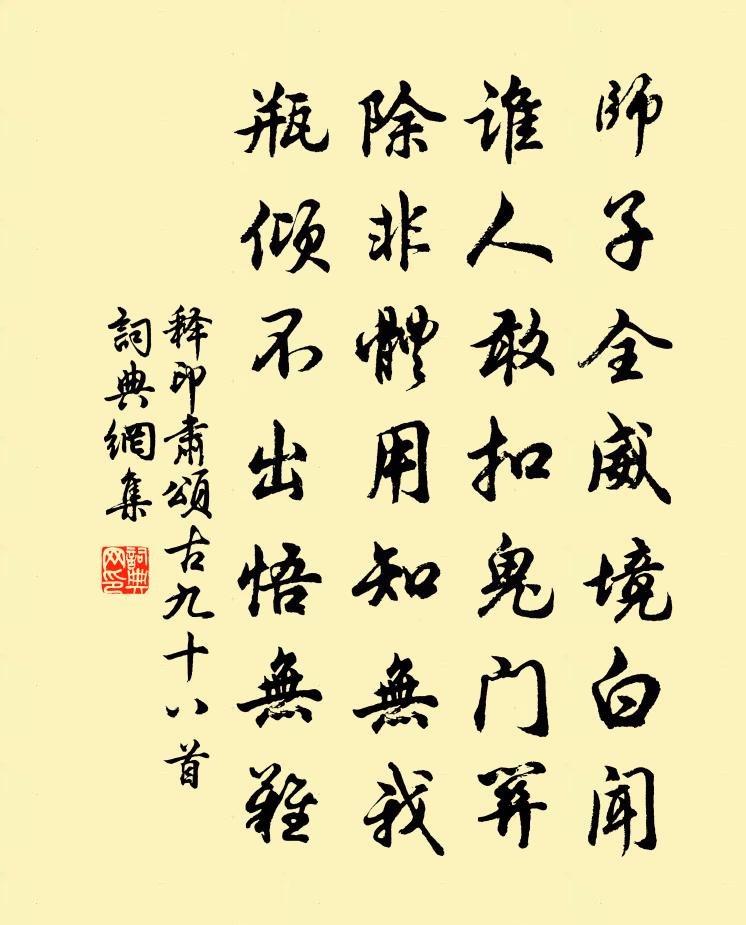 師子全威境白聞
誰人敢扣鬼门關
除非體用知無我
瓶倾不出悟無難
释印肅頌古九十八首
詞典網集
詞典网印